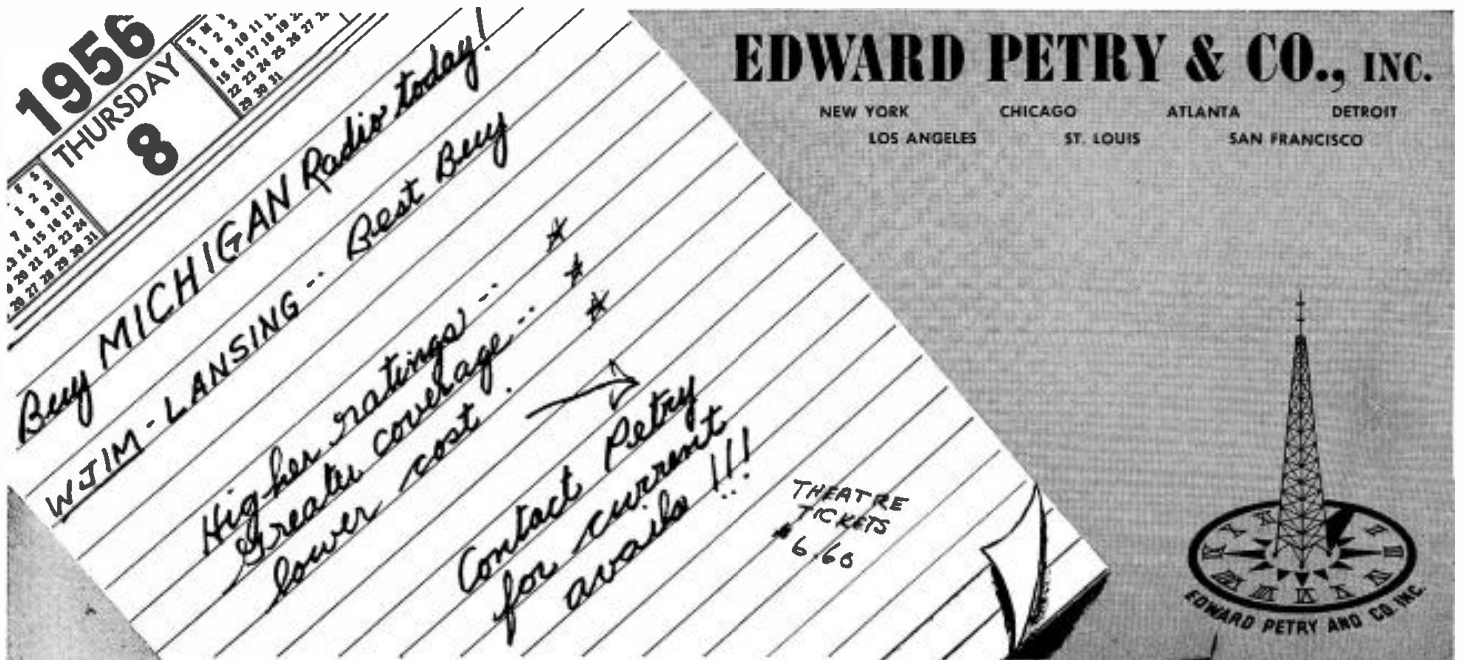 1956
THURSDAY
8
S M
1 2 3
8 9 10 11
15 16 17 18 19
22 23 24 25 26
29 30 31
F S
1 2 3
7 8 9 10
14 15 16 17
20 21 22 23 24
27 28 29 30 31
Buy MICHIGAN Radio today!
WJIM - LANSING -- Best Buy
Higher ratings --
Greater coverage --
lower cost.
Contact Petry
for current
avails!!!
THEATRE
TICKETS
$6.60
EDWARD PETRY & CO., INC.
NEW YORK CHICAGO ATLANTA DETROIT
LOS ANGELES ST. LOUIS SAN FRANCISCO
EDWARD PETRY AND CO. INC.